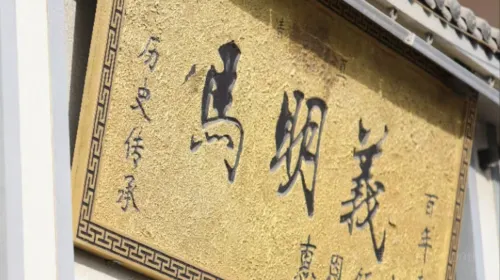 历史传承
馬明義
百年